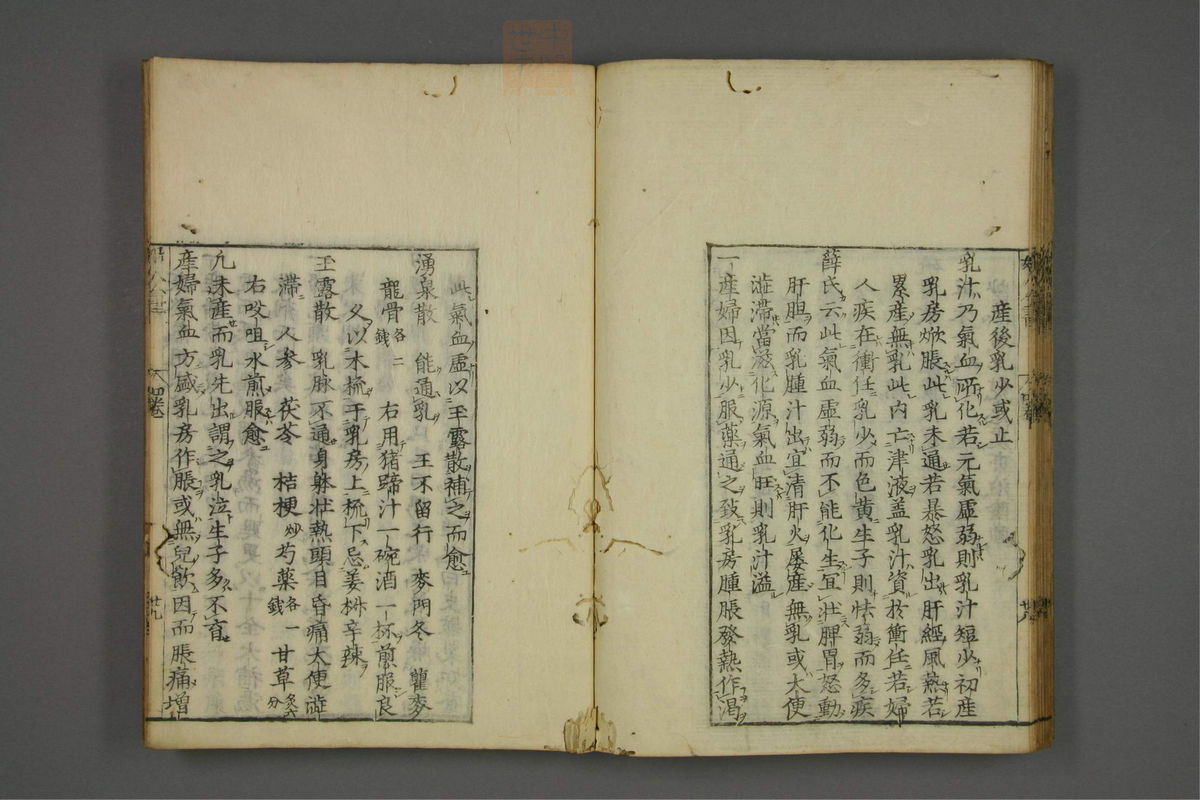 產後乳少或止
乳汁乃氣血所化若元氣虛弱則乳汁短少初產
乳房焮脹此乳未通若暴怒乳出肝經風熱若
累產無乳此內亡津液蓋乳汁資於衝任若婦
人疾在衝任乳少而色黃生子則怯弱而多疾
薛氏云此氣血虛弱而不能化生宜壯脾胃怒動
肝胆而乳腫汁出宜清肝火屢產無乳或大便
澁滯當滋化源氣血旺則乳汁溢
一產婦因乳少服藥通之致乳房腫脹發熱作渴
此氣血虛以玉露散補之而愈
湧泉散 能通乳 王不留行 麥門冬 瞿麥
龍骨各二錢 右用猪蹄汁一碗酒一杯煎服良
久以木梳于乳房上梳下忌姜椒辛辣
玉露散 乳脉不通身躰壯熱頭目昏痛大便澁
滯 人参 茯苓 桔梗炒 芍藥各一錢 甘草炙六分
右㕮咀水煎服愈
凢未產而乳先出謂之乳泣生子多不育
產婦氣血方盛乳房作脹或無兒飲因而脹痛增
四卷
廿九